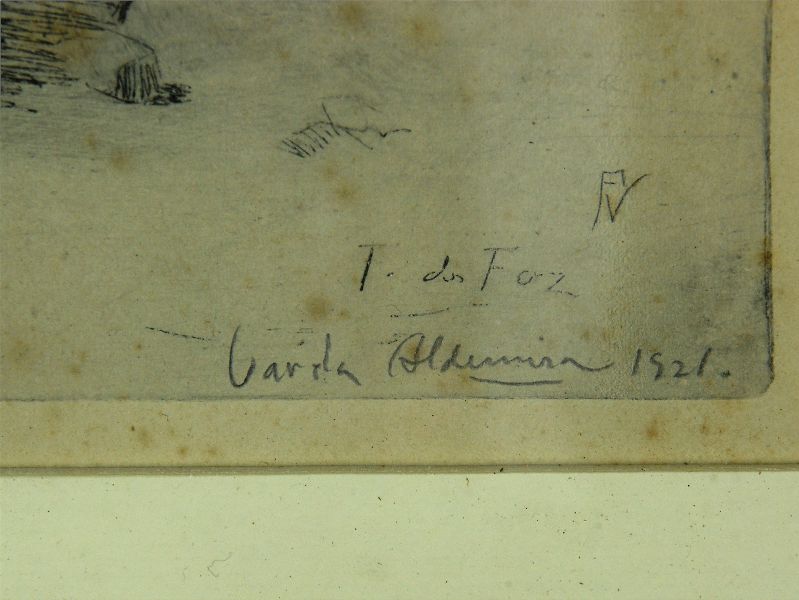 AV
T. dos Foz
Varela Aldemira 1921.